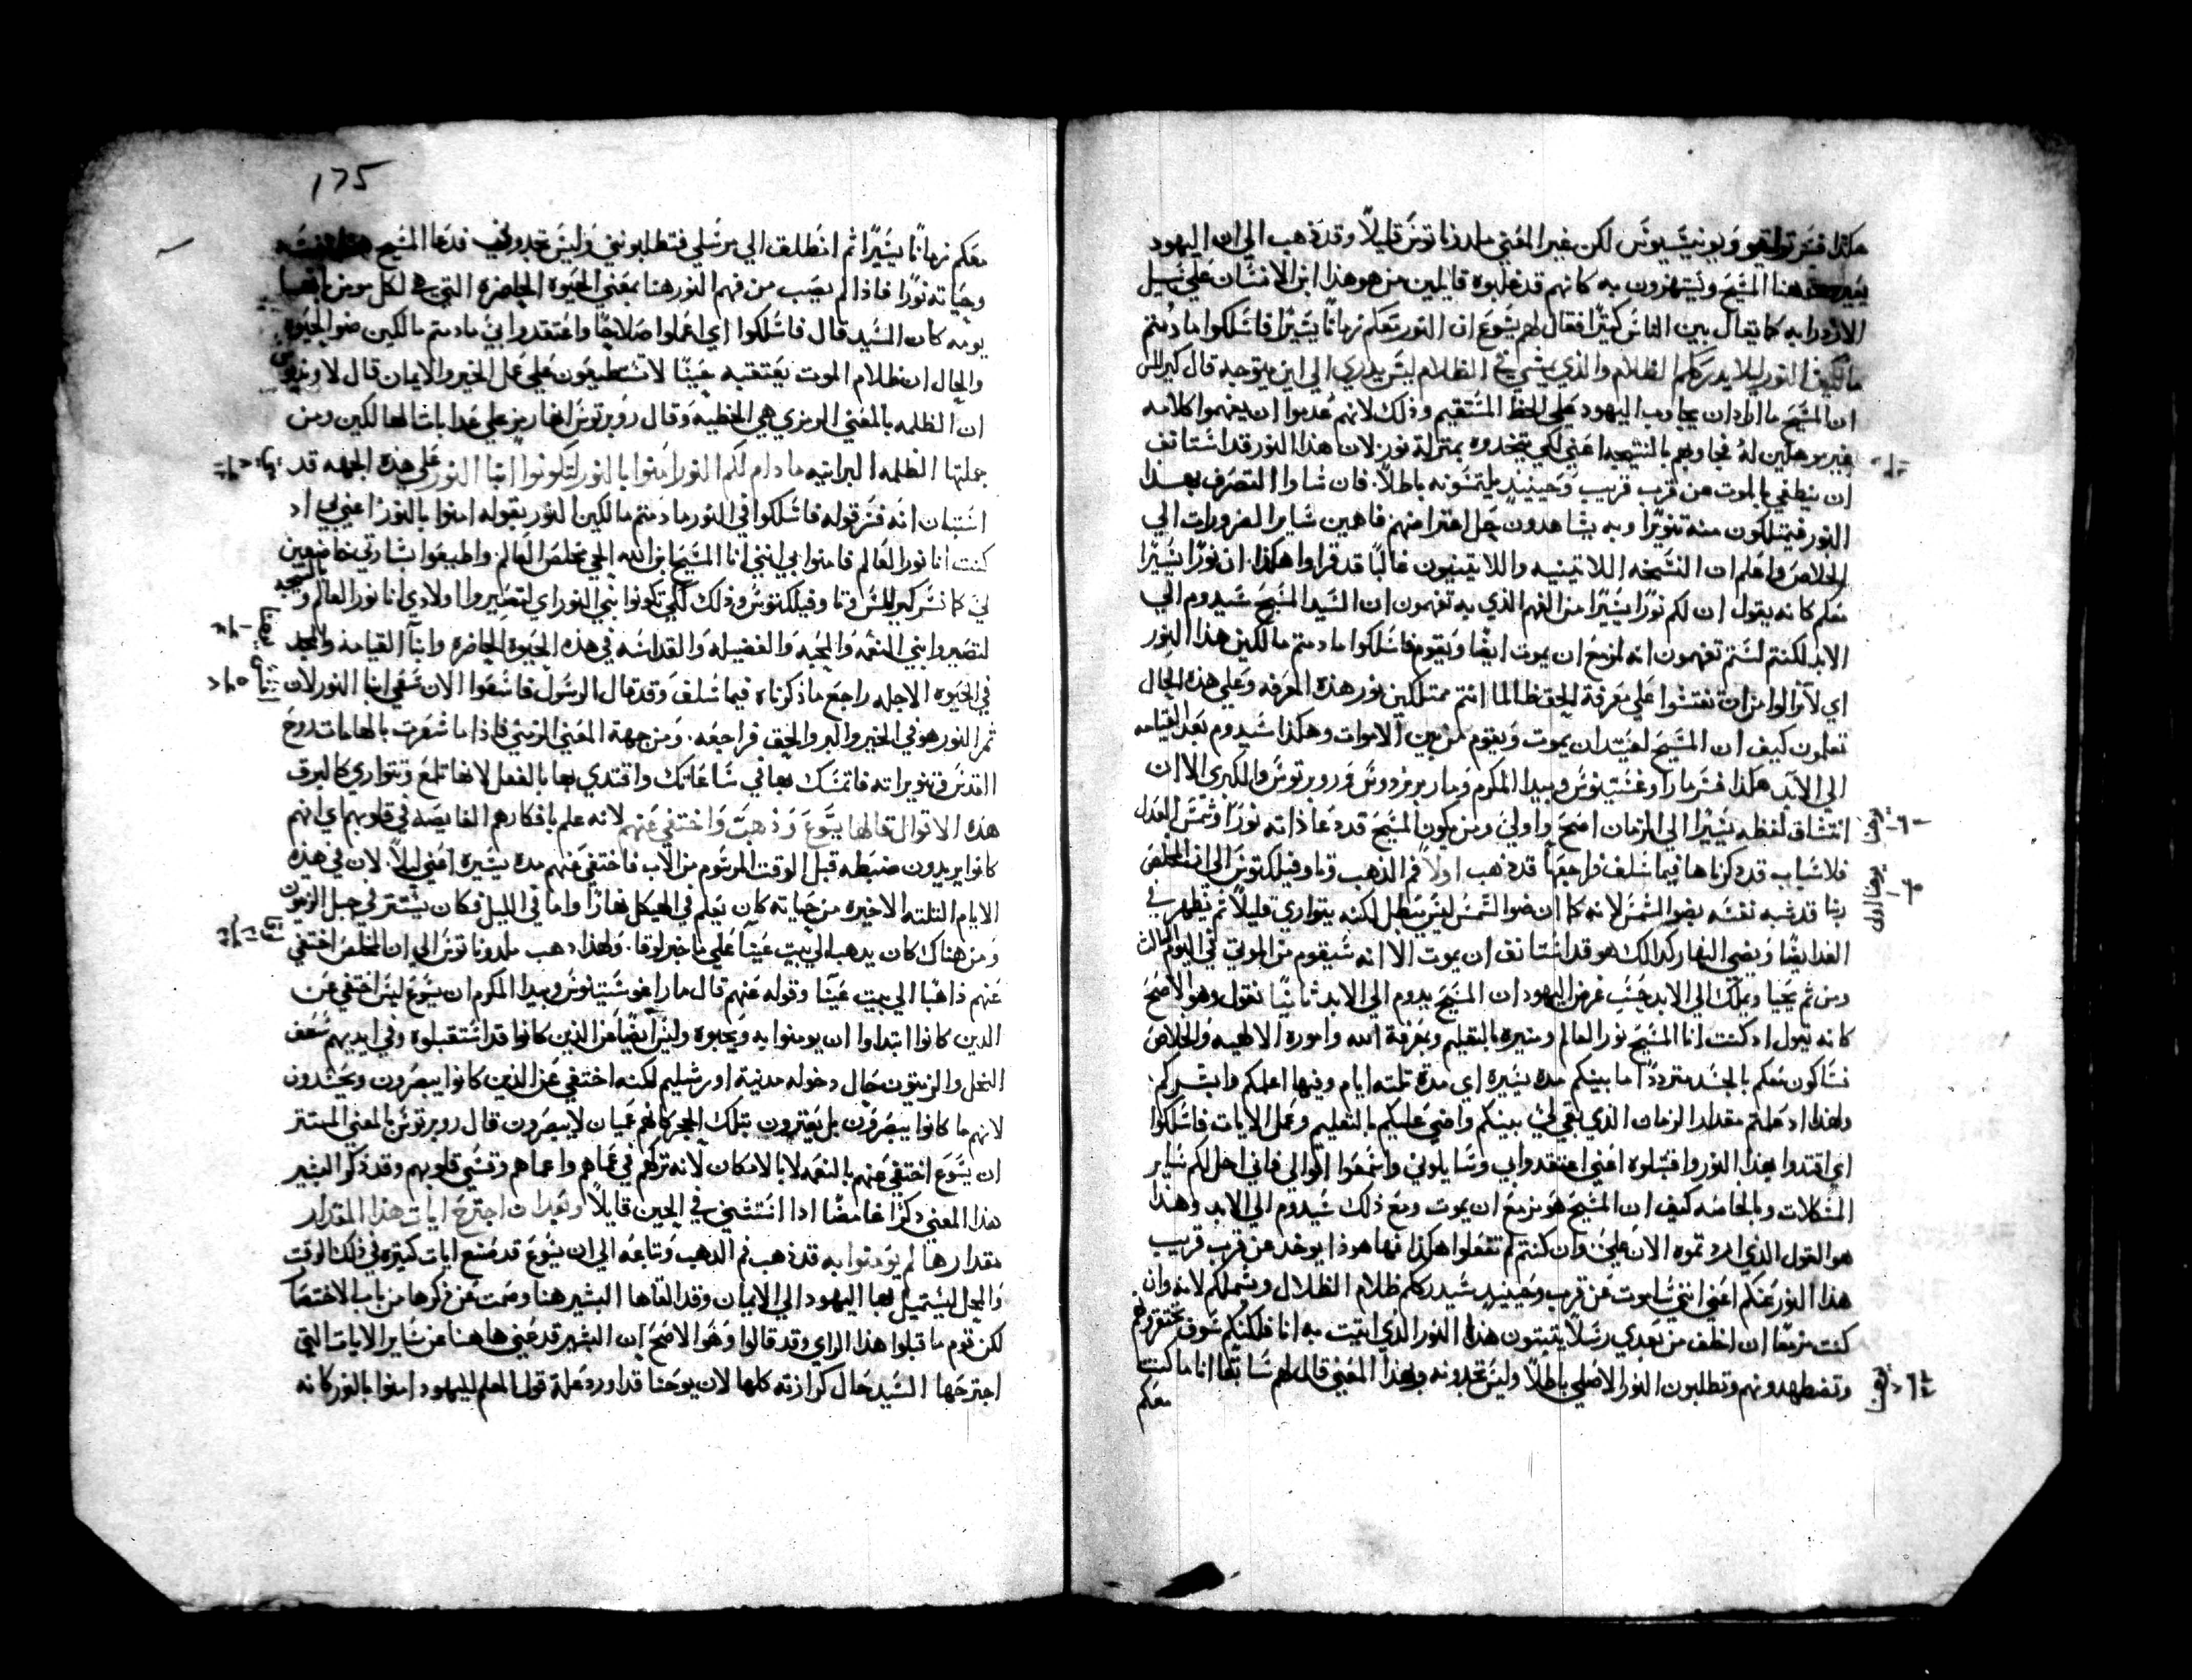 هكذا فسر توافيلقيو ويونيسيوس لكن غير المعني ملدوناتوس قليلاً وقد ذهب الي ان اليهود
هنا المسيح ويستهزون به كانهم قد غلبوه قايلين من هو هذا ابن الانسان علي سبيل
الازدرا به كما يقال بين الناس كثيرًا فقال لهم يسوع ان النور معكم زمانًا يسيرًا فاسلكوا ما دمتم
مالكين النور ليلا يدرككم الظلام والذي يمشي في الظلام ليس يدري الي اين يتوجه قال كيرللس
ان المسيح ما اراد ان يجاوب اليهود علي الخط المستقيم وذلك لانهم عدموا ان يفهموا كلامه
غير موهلين له فجاوبهم بالنتيجه اعني لكي يتخذوه بمنزلة نور لان هذا النور قد استانف
ان ينطفي بالموت عن قرب قريب وحينيدٍ يلتمسونه باطلاً. فان شاوا التصرف بهذا
النور فيمتلكون منه تنويرًا وبه يشاهدون حل اعتراضهم فاهين ساير الضرورات الي
الخلاص واعلم ان النسخه اللاتينيه واللاتينيون غالبًا قد قراوا هكذا. ان نورًا يسيرًا
معكم كانه يقول ان لكم نورًا يسيرًا من الفهم الذي به تفهمون ان السيد المسيح سيدوم الي
الابد لكنتم لستم تفهمون انه لمزمع ان يموت ايضًا ويقوم فاسلكوا ما دمتم مالكين هذا النور
اي لا تزالوا من ان تفتشوا علي معرفة الحق طالما انتم ممتلكين نور هذه المعرفه وعلي هذه الحال
تعلمون كيف ان المسيح لعتيد ان يموت ويقوم من بين الاموات وهكذا سيدوم بعد القيامه
الي الابد هكذا فسر مار اوغستينوس وبيدا المكرم ومار بروزدوس وروبرتوس والكبري الا ان
انتساق لفظه يسيرًا الي الزمان اصح واولي ومن يكون المسيح قد دعا ذاته نورًا وشمس العدل
فلاسباب قد ذكرناها فيما سلف فراجعها قد ذهب اولاً فم الذهب وتاوفيلكتوس الي ان المخلص
ربنا قد شبه نفسه بضو الشمس لانه كما ان ضو الشمس ليس يبطل لكنه يتواري قليلاً ثم تظهر في
الغد ايضًا ويضي النهار كدالك هو قد استانف ان يموت الا انه سيقوم من الموتي في اليوم التالت
ومن ثم يحيا ويملك الي الابد حسب غرض اليهود ان المسيح يدوم الي الابد ثانيًا نقول وهو الاصح
كانه يقول اد كنت انا المسيح نور العالم ومنيره بالتعليم وبمعرفة الله واموره الالهيه والخلاص
نساكون معكم بالجسد مترددًا ما بينكم مده يسيره اي مدة تلته ايام وفيها اعلمكم وابشركم
ولهذا اد علمتم مقدار الزمان الذي بقي لي بينكم واضي عليكم بالتعليم وعمل الايات فاسلكوا
اي اقتدوا بهذا النور واقبلوه اعني اعتقدوا بي وسايلوني واسمعوا اقوالي فاني احل لكم ساير
المشكلات وبالخاصه كيف ان المسيح هو مزمع ان يموت ومع ذلك سيدوم الي الابد وهذا
هو القول الذي اردتموه الان علي وان كنتم لم تفعلوا هكذا فها هوذا يوخد عن قرب قريب
هذا النور عنكم اعني انني ساموت عن قرب وحينيدٍ سيدرككم ظلام الظلال ويشملكم لانه وان
كنت مزمعًا ان اخلف من بعدي رسلاً يتبتون هذا النور الذي اتيت به انا فلكنكم سوف تحتقرونهم
وتضطهدونهم وتطلبون النور الاصلي باطلاً وليس تجدونه ولهذا المعني قال لهم سابقًا انا ماكت
معكم
يوحنا
يوحنا اول
يوحنا
175
معكم زمانًا يسيرًا ثم انطلق الي مرسلي فتطلبونني وليس تجدوني قد دعا المسيح
وحياته نورًا فاذًا لم يصب من فهم النور هنا بمعني الحيوه الحاضره التي هي لكل مومن
يومه كان السيد قال فاسلكوا اي اعملوا صلاحًا واعتقدوا بي ما دمتم مالكين ضو الحيوه
والحال ان ظلام الموت يعتقبه حينًا لا تستطيعون علي عمل الخير والايمان قال
ان الظلمه بالمعني الرمزي هي الخطيه وقال روبرتوس انها رمز علي عدابات الهالكين ومن
جملتها الظلمه البرانيه ما دام لكم النور امنوا بالنور لتكونوا ابنا النور علي هذه الجهه قد
استبان انه فسر قوله فاسلكوا في النور ما دمتم مالكين النور بقوله امنوا بالنور اعني بي اد
كنت انا نور العالم فامنوا بي انني انا المسيح ابن الله الحي مخلص العالم. واطيعوا بشارتي خاضعين
لي كما فسر كيرللس وتاوفيلكتوس وذلك لكي تكونوا بني النور اي لتصيروا اولادي انا نور العالم والمجد
لتصيروا بني النعمه والمحبه والفضيله والقداسه في هذه الحيوه الحاضره وابنآ القيامه والمجد
في الحيوه الاجله راجع ما ذكرناه فيما سلف وقد قال الرسول فاسعوا الان سعي ابنا النور لان
ثمر النور هو في الخير والبر والحق فراجعه. ومن جهة المعني الرمزي فاذا ما شعرت بالهامات روح
القدس وتنويراته فاتمسك بها في ساعاتك واقتدي بها بالفعل لانها تلمع وتتواري كالبرق
هذه الاقوال قالها يسوع وذهب واختفي عنهم لانه علم بافكارهم الغايصه في قلوبهم اي انهم
كانوا يريدون ضبطه قبل الوقت المرسوم من الاب فاختفي عنهم مده يسيره اعني ليلاً. لان في هذه
الايام التلته الاخيره من حياته كان يعلم في الهيكل نهارًا واما في الليل فكان يستتر في جبل الزيتون
ومن هناك كان يدهب الي بيت عينيا علي ما خبر لوقا. ولهذا دهب ملدوناتوس الي ان المخلص اختفي
عنهم ذاهبًا الي بيت عينيا وقوله عنهم قال مار اغوستينوس وبيدا المكرم ان يسوع ليس اختفي عن
الدين كانوا ابتداوا ان يومنوا به ويحبوه وليس ايضًا عن الذين كانوا قد استقبلوه وفي ايديهم سعف
النخل والزيتون حال دخوله مدينة اورشليم لكنه اختفي عن الذين كانوا يبصرون ويحسدون
لانهم ما كانوا يبصرون بل يعترون بتلك الحجر كانهم عميان لا يبصرون قال روبرتوس بالمعني المستتر
ان يسوع اختفي عنهم بالنعمه لا بالامكان لانه تركهم في عماهم واعماهم وقسي قلوبهم وقد ذكر البشير
هذا المعني ذكرًا غامضًا ادا استتني في الحين قايلاً وبعد ان اجترح ايات هذا المقدار
مقدارها لم يومنوا به قد ذهب فم الدهب وتباعه الي ان يسوع قد صنع ايات كتيره في ذلك الوقت
والمحل ليستميل بها اليهود الي الايمان وقد القاها البشير هنا وصمت عن ذكرها من باب الاختصار
لكن قوم ما قبلوا هذا الراي وقد قالوا وهو الاصح ان البشير قد عني ها هنا عن ساير الايات التي
اجترحها السيد حال كرازته كلها لان يوحنا قد اورد علة قول المعلم لليهود امنوا بالنور كانه